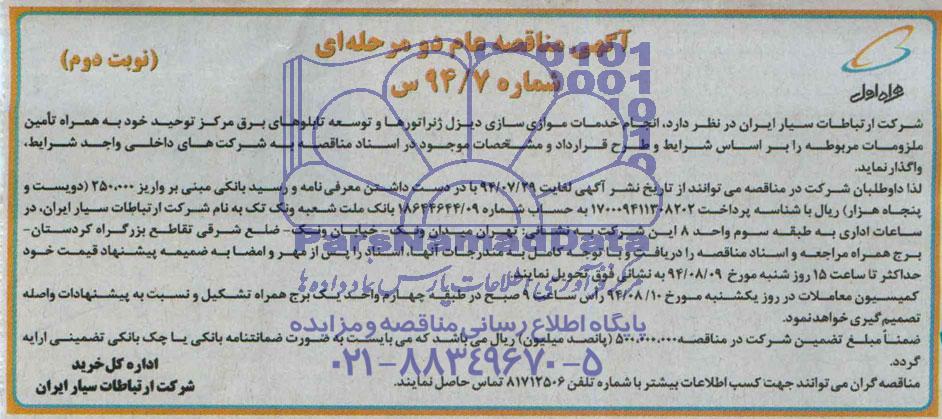 آگهی مناقصه عام دو مرحله‌ای
شماره ۹۴/۷ س
(نوبت دوم)
همراه اول
شرکت ارتباطات سیار ایران در نظر دارد، انجام خدمات موازی سازی دیزل ژنراتورها و توسعه تابلوهای برق مرکز توحید خود به همراه تأمین
ملزومات مربوطه را بر اساس شرایط و طرح قرارداد و مشخصات موجود در اسناد مناقصه به شرکت های داخلی واجد شرایط،
واگذار نماید.
لذا داوطلبان شرکت در مناقصه می توانند از تاریخ نشر آگهی لغایت ۹۴/۰۷/۲۹ با در دست داشتن معرفی نامه و رسید بانکی مبنی بر واریز ۲۵۰،۰۰۰ (دویست و
پنجاه هزار) ریال با شناسه پرداخت ۱۷۰۰۰۹۴۱۱۳۰۸۲۰۲ به حساب شماره ۱۸۶۴۴۶۴۴/۰۹ بانک ملت شعبه ونک تک به نام شرکت ارتباطات سیار ایران، در
ساعات اداری به طبقه سوم واحد ۸ این شرکت به نشانی: تهران میدان ونک- خیابان ونک- ضلع شرقی تقاطع بزرگراه کردستان-
برج همراه مراجعه و اسناد مناقصه را دریافت و با توجه کامل به مندرجات آنها، اسناد را پس از مهر و امضا به ضمیمه پیشنهاد قیمت خود
حداکثر تا ساعت ۱۵ روز شنبه مورخ ۹۴/۰۸/۰۹ به نشانی فوق تحویل نمایند.
کمیسیون معاملات در روز یکشنبه مورخ ۹۴/۰۸/۱۰ راس ساعت ۹ صبح در طبقه چهارم واحد یک برج همراه تشکیل و نسبت به پیشنهادات واصله
تصمیم گیری خواهد نمود.
ضمناً مبلغ تضمین شرکت در مناقصه ۵۰۰،۰۰۰،۰۰۰ (پانصد میلیون) ریال می باشد که می بایست به صورت ضمانتنامه بانکی یا چک بانکی تضمینی ارایه
گردد.
مناقصه گران می توانند جهت کسب اطلاعات بیشتر با شماره تلفن ۸۱۷۱۲۵۰۶ تماس حاصل نمایند.
اداره کل خرید
شرکت ارتباطات سیار ایران
ParsNamadData
مرکز فرآوری اطلاعات پارس نماد داده ها
پایگاه اطلاع رسانی مناقصه و مزایده
۰۲۱-۸۸۳۴۹۶۷۰-۵